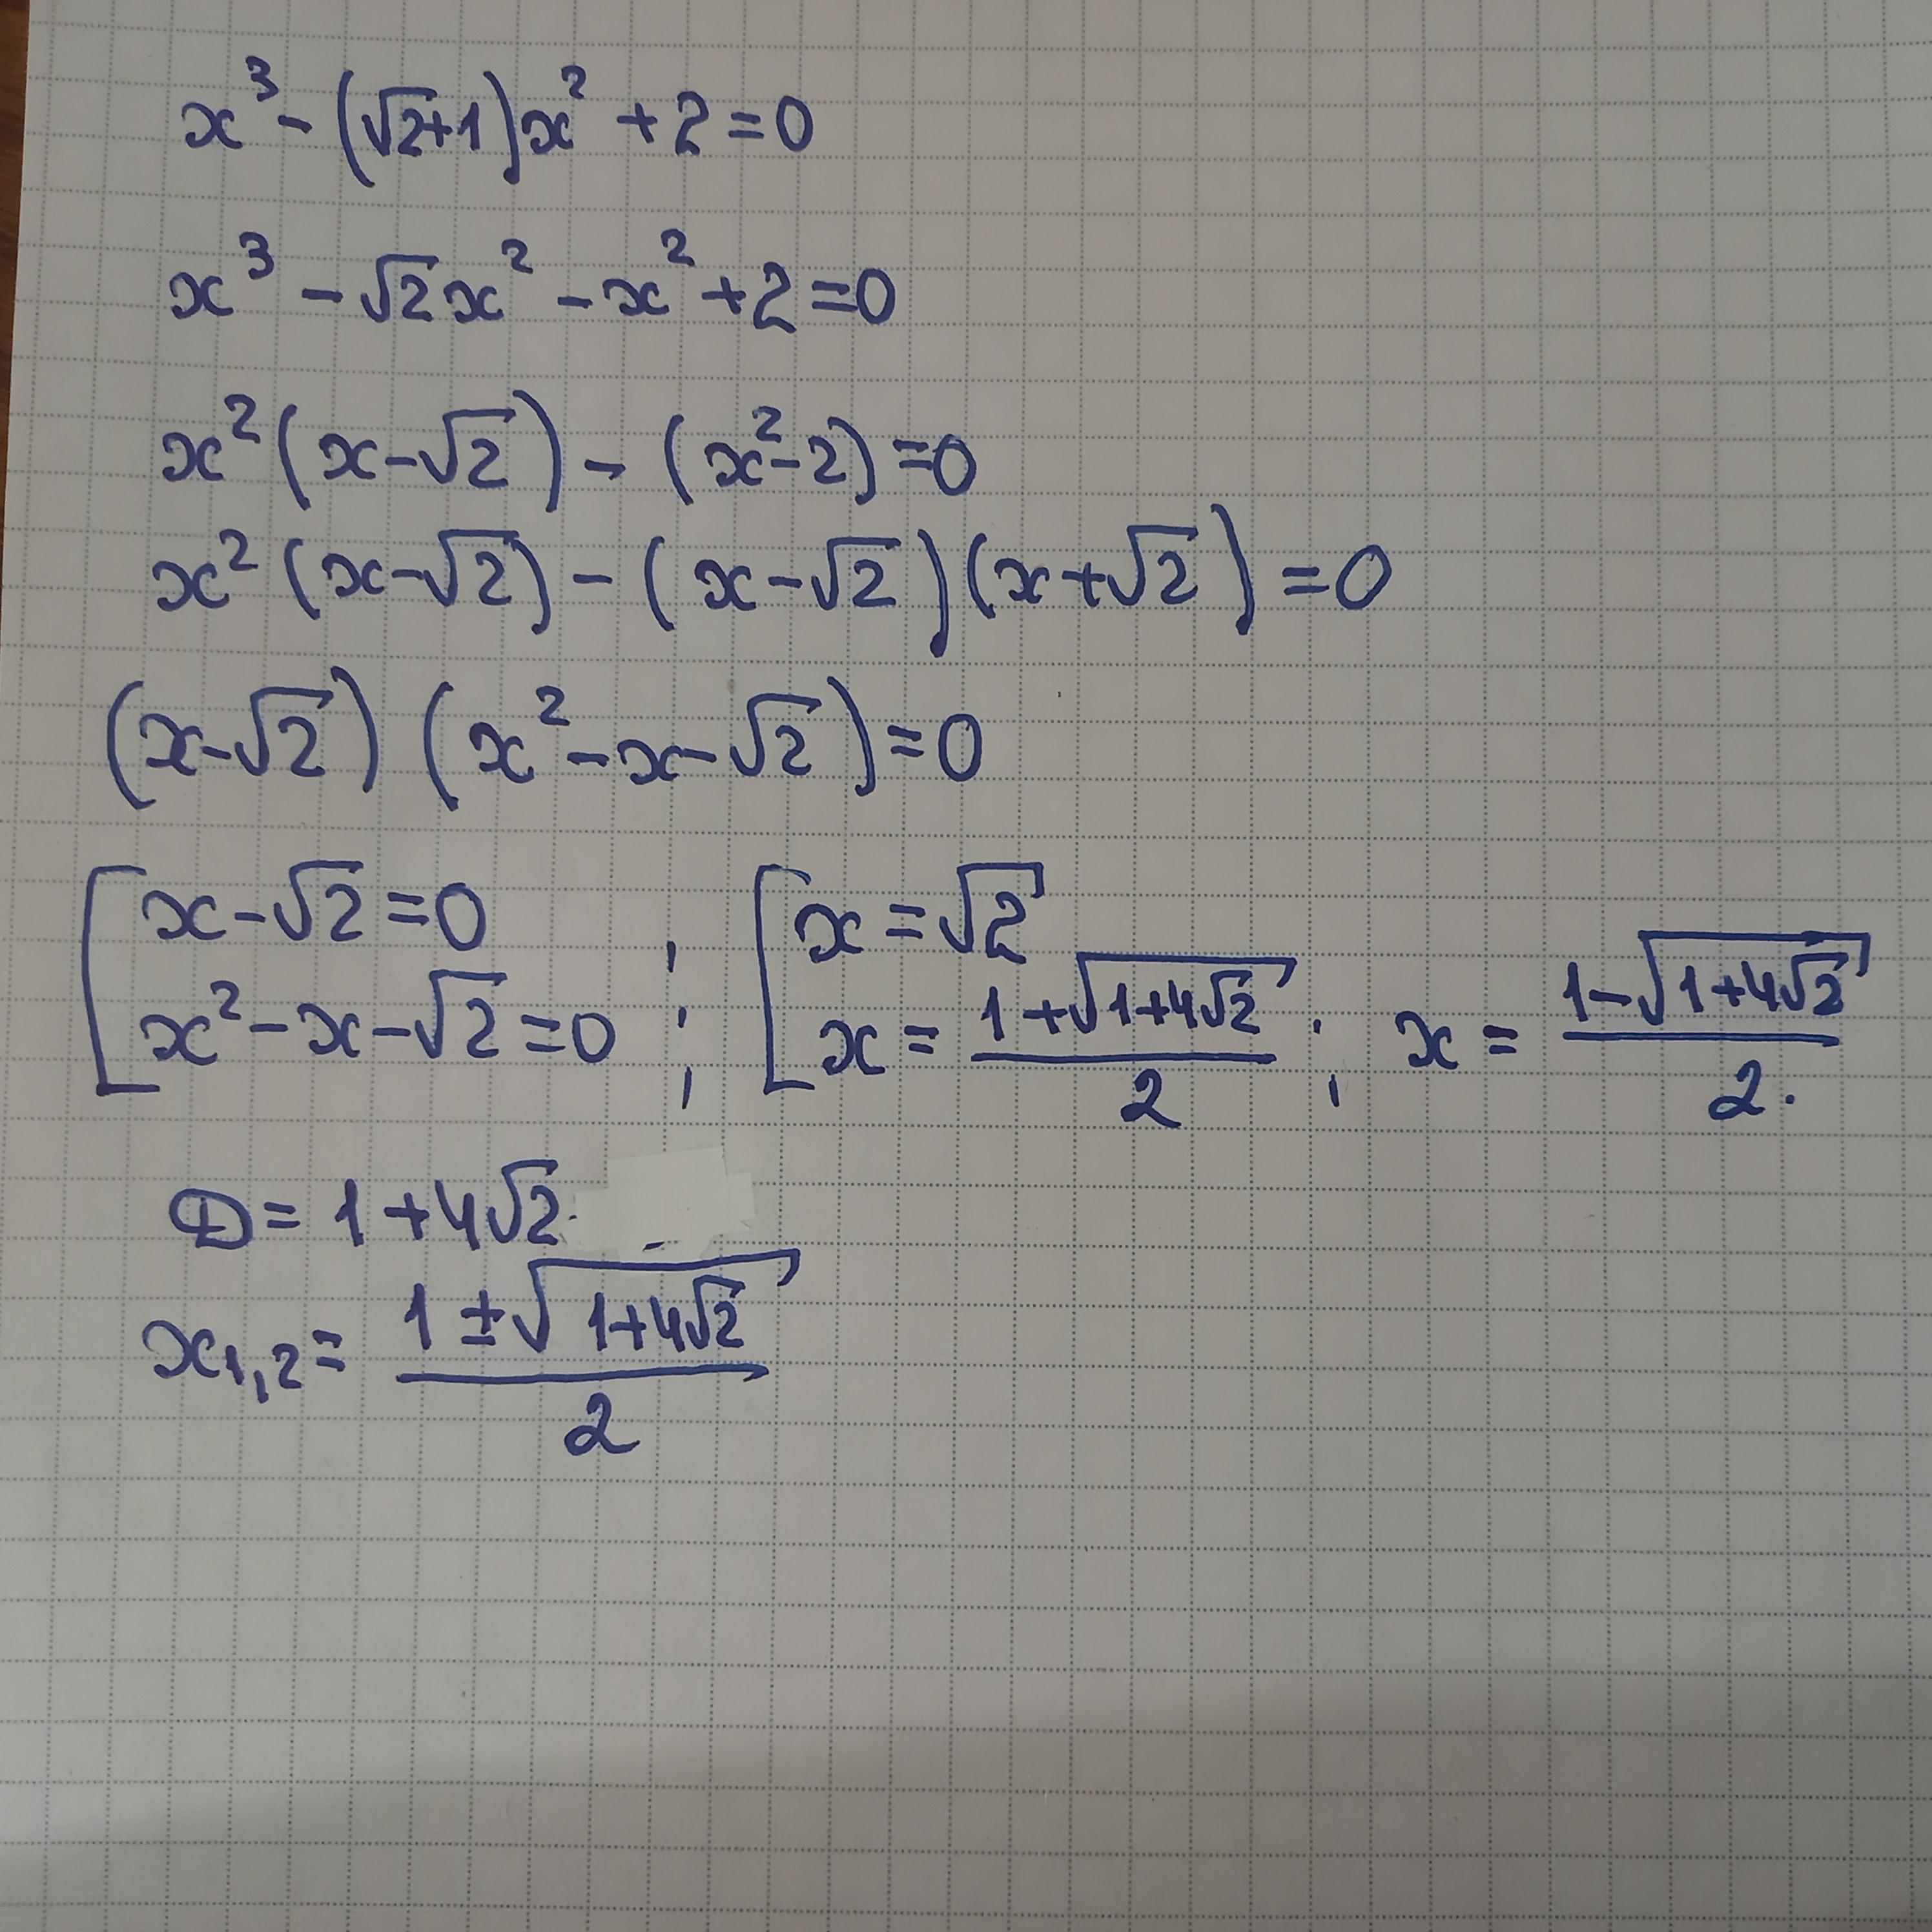 x³ - (√2+1)x² + 2 = 0
x³ - √2x² - x² + 2 = 0
x²(x-√2) - (x²-2) = 0
x²(x-√2) - (x-√2)(x+√2) = 0
(x-√2)(x²-x-√2) = 0
[x-√2=0 ; [x=√2
x²-x-√2=0 ; x=(1+√(1+4√2))/2 ; x=(1-√(1+4√2))/2.
D = 1+4√2
x₁,₂ = (1±√(1+4√2))/2